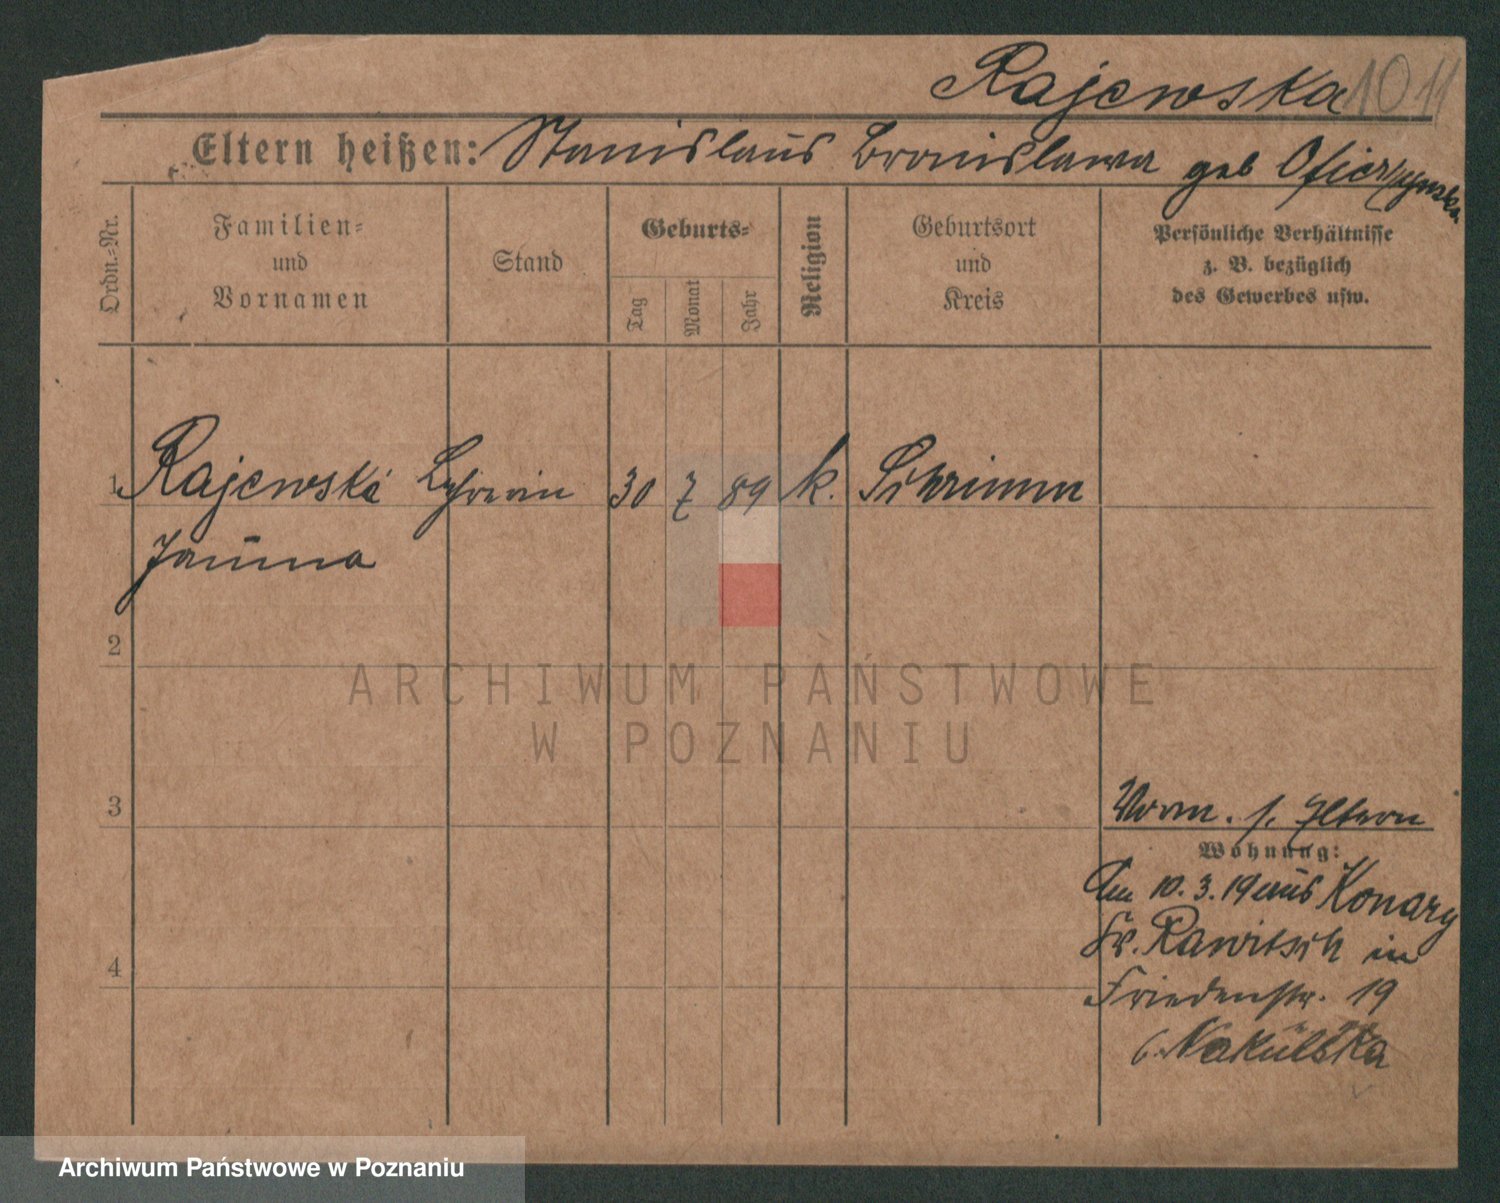 Rajewska 1011
Eltern heißen: Stanislaus Bronislawa geb
Ordn.-Nr.
Familien-
und
Vornamen
Stand
Geburts-
Tag
Monat
Jahr
Religion
Geburtsort
und
Kreis
Persönliche Verhältnisse
z. B. bezüglich
des Gewerbes usw.
1 Rajewska Lehrerin 30 7 89 k. Schrimm
Janina
2
3
4
Vorm. s. Eltern
Wohnung:
Am 10.3.19 aus Konary
Kr. Rawitsch in
Friedenstr. 19
b. Nakulska
ARCHIWUM PAŃSTWOWE
W POZNANIU
Archiwum Państwowe w Poznaniu